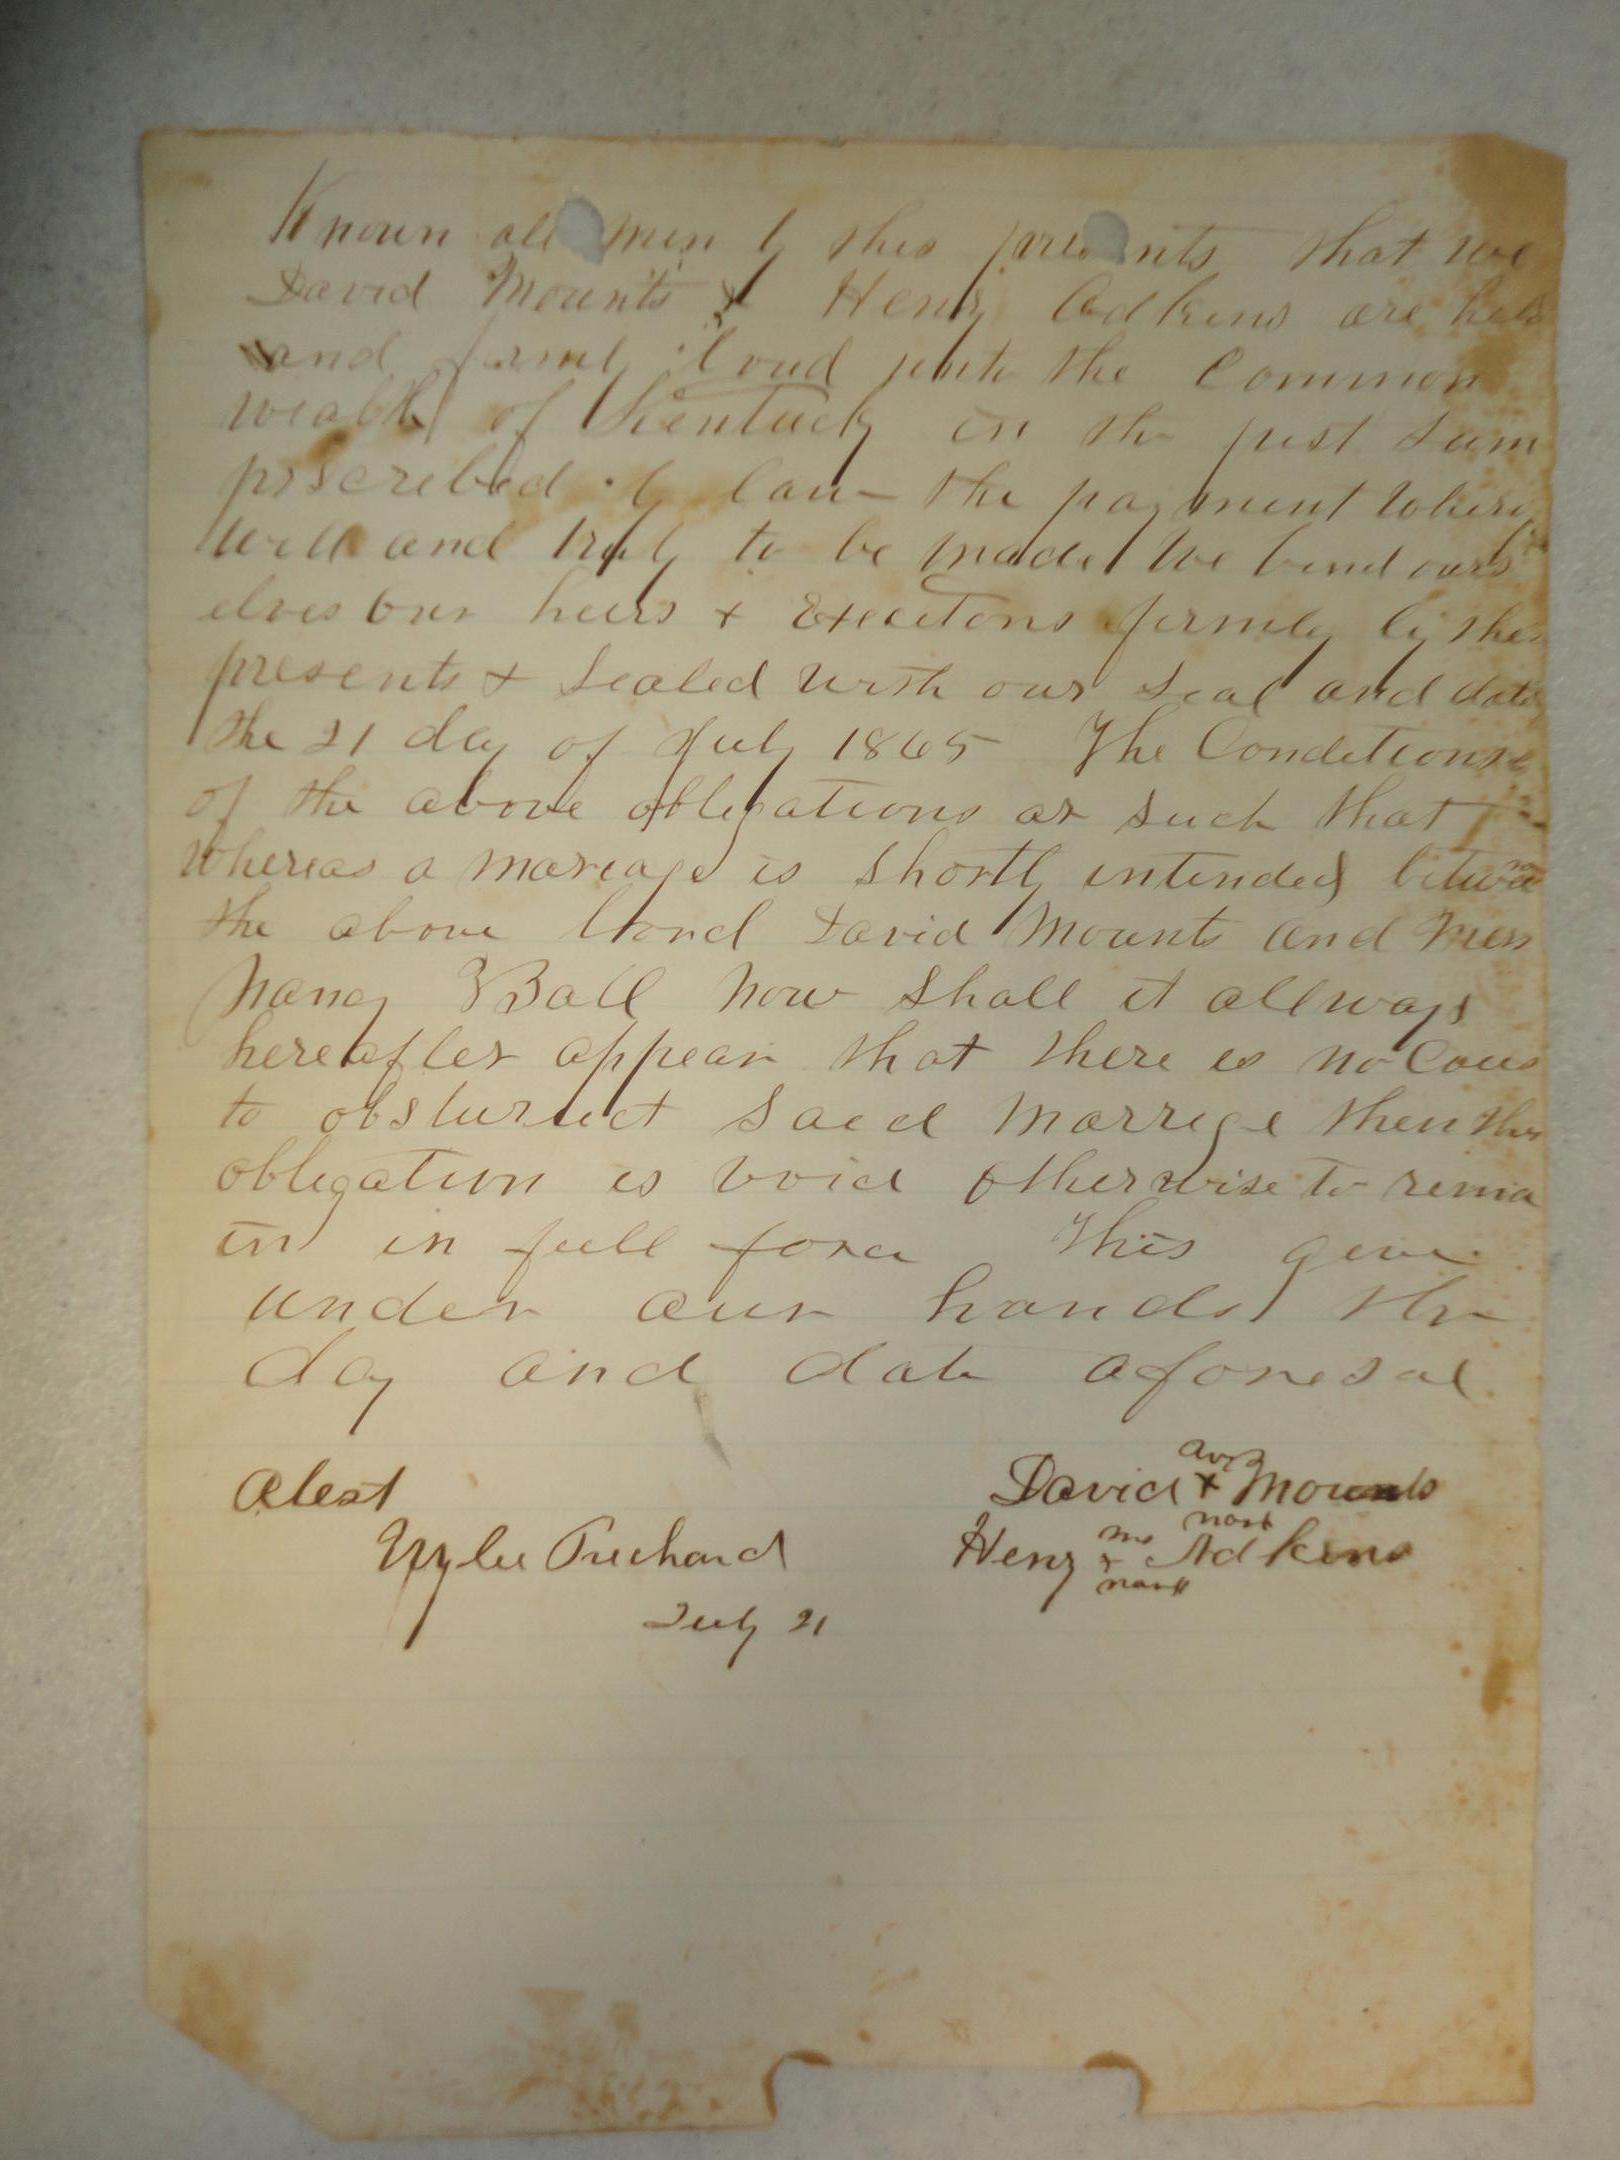 Known all men by this presents that we
David Mounts & Henry Adkins are held
and firmly bound unto the Common
wealth of Kentucky in the just Sum
prscribed by law the payment where
will and truly to be made We bind ours
elves our heirs & Executors firmly by these
presents & Sealed with our Seal and date
the 21 day of July 1865 The Conditions
of the above obligations ar such that
Whereas a mariage is Shortly intended
the above bond David Mounts and
Nancy Ball Now Shall it allways
hereafter appear that there is no Caus
to obsturuct Saed Marrege then this
obligation is void otherwise to rema
in in full force This give
under our hands the
day and date aforesad
Atest David X Mounts
mark
Henry X Adkins
mark
Wylie Prichard
July 21